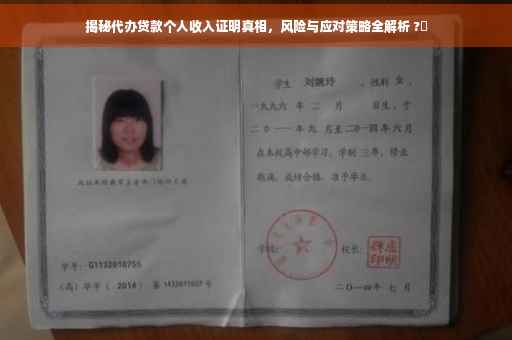 揭秘代办贷款个人收入证明真相，风险与应对策略全解析 ?
学生 刘婉玲 ，性别 女 ，
一九九六 年 二 月 日生，于
二0一一 年 九 月至二0一四 年 六 月
在本校高中部学习，学制 三年，修业
期满，成绩合格，准予毕业。
学号： G1132010755
(高) 毕字 ( 2014 ) 第 1432011027 号
学校：
校长：
二〇一四年 七 月